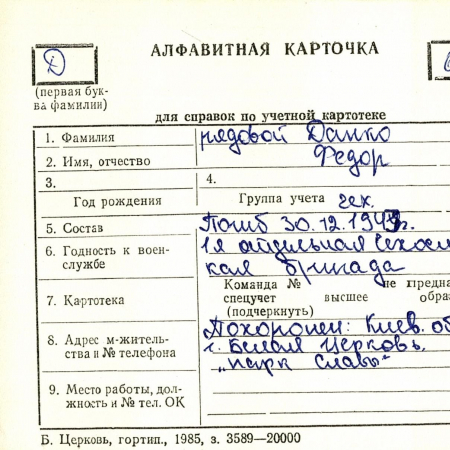 Д
АЛФАВИТНАЯ КАРТОЧКА
(первая бук-
ва фамилии)
для справок по учетной картотеке
1. Фамилия рядовой Данко
2. Имя, отчество Федор
3. 4.
Год рождения Группа учета чех.
5. Состав Погиб 30.12.194 г.
6. Годность к воен-
службе
1я отдельная Чехосл
кая бригада
7. Картотека
Команда № не предна
спецучет высшее обра
(подчеркнуть)
8. Адрес м-житель-
ства и № телефона
Похоронен: Киев. об
г. Белая Церковь,
„парк Славы"
9. Место работы, дол-
жность и № тел. ОК
Б. Церковь, гортип., 1985, з. 3589—20000